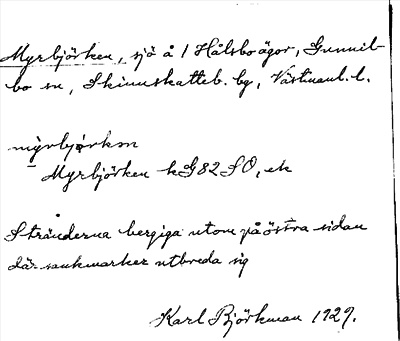 Myrbjörken, sjö å 1 Hålsbo ägor, Gunnil-
bo sn, Skinnskatteb. bg, Västmanl. l.
mýrbjørkɘn
Myrbjörken kG 82 SO, ek
Stränderna bergiga utom på östra sidan
där sankmarker utbreda sig
Karl Björkman 1929.